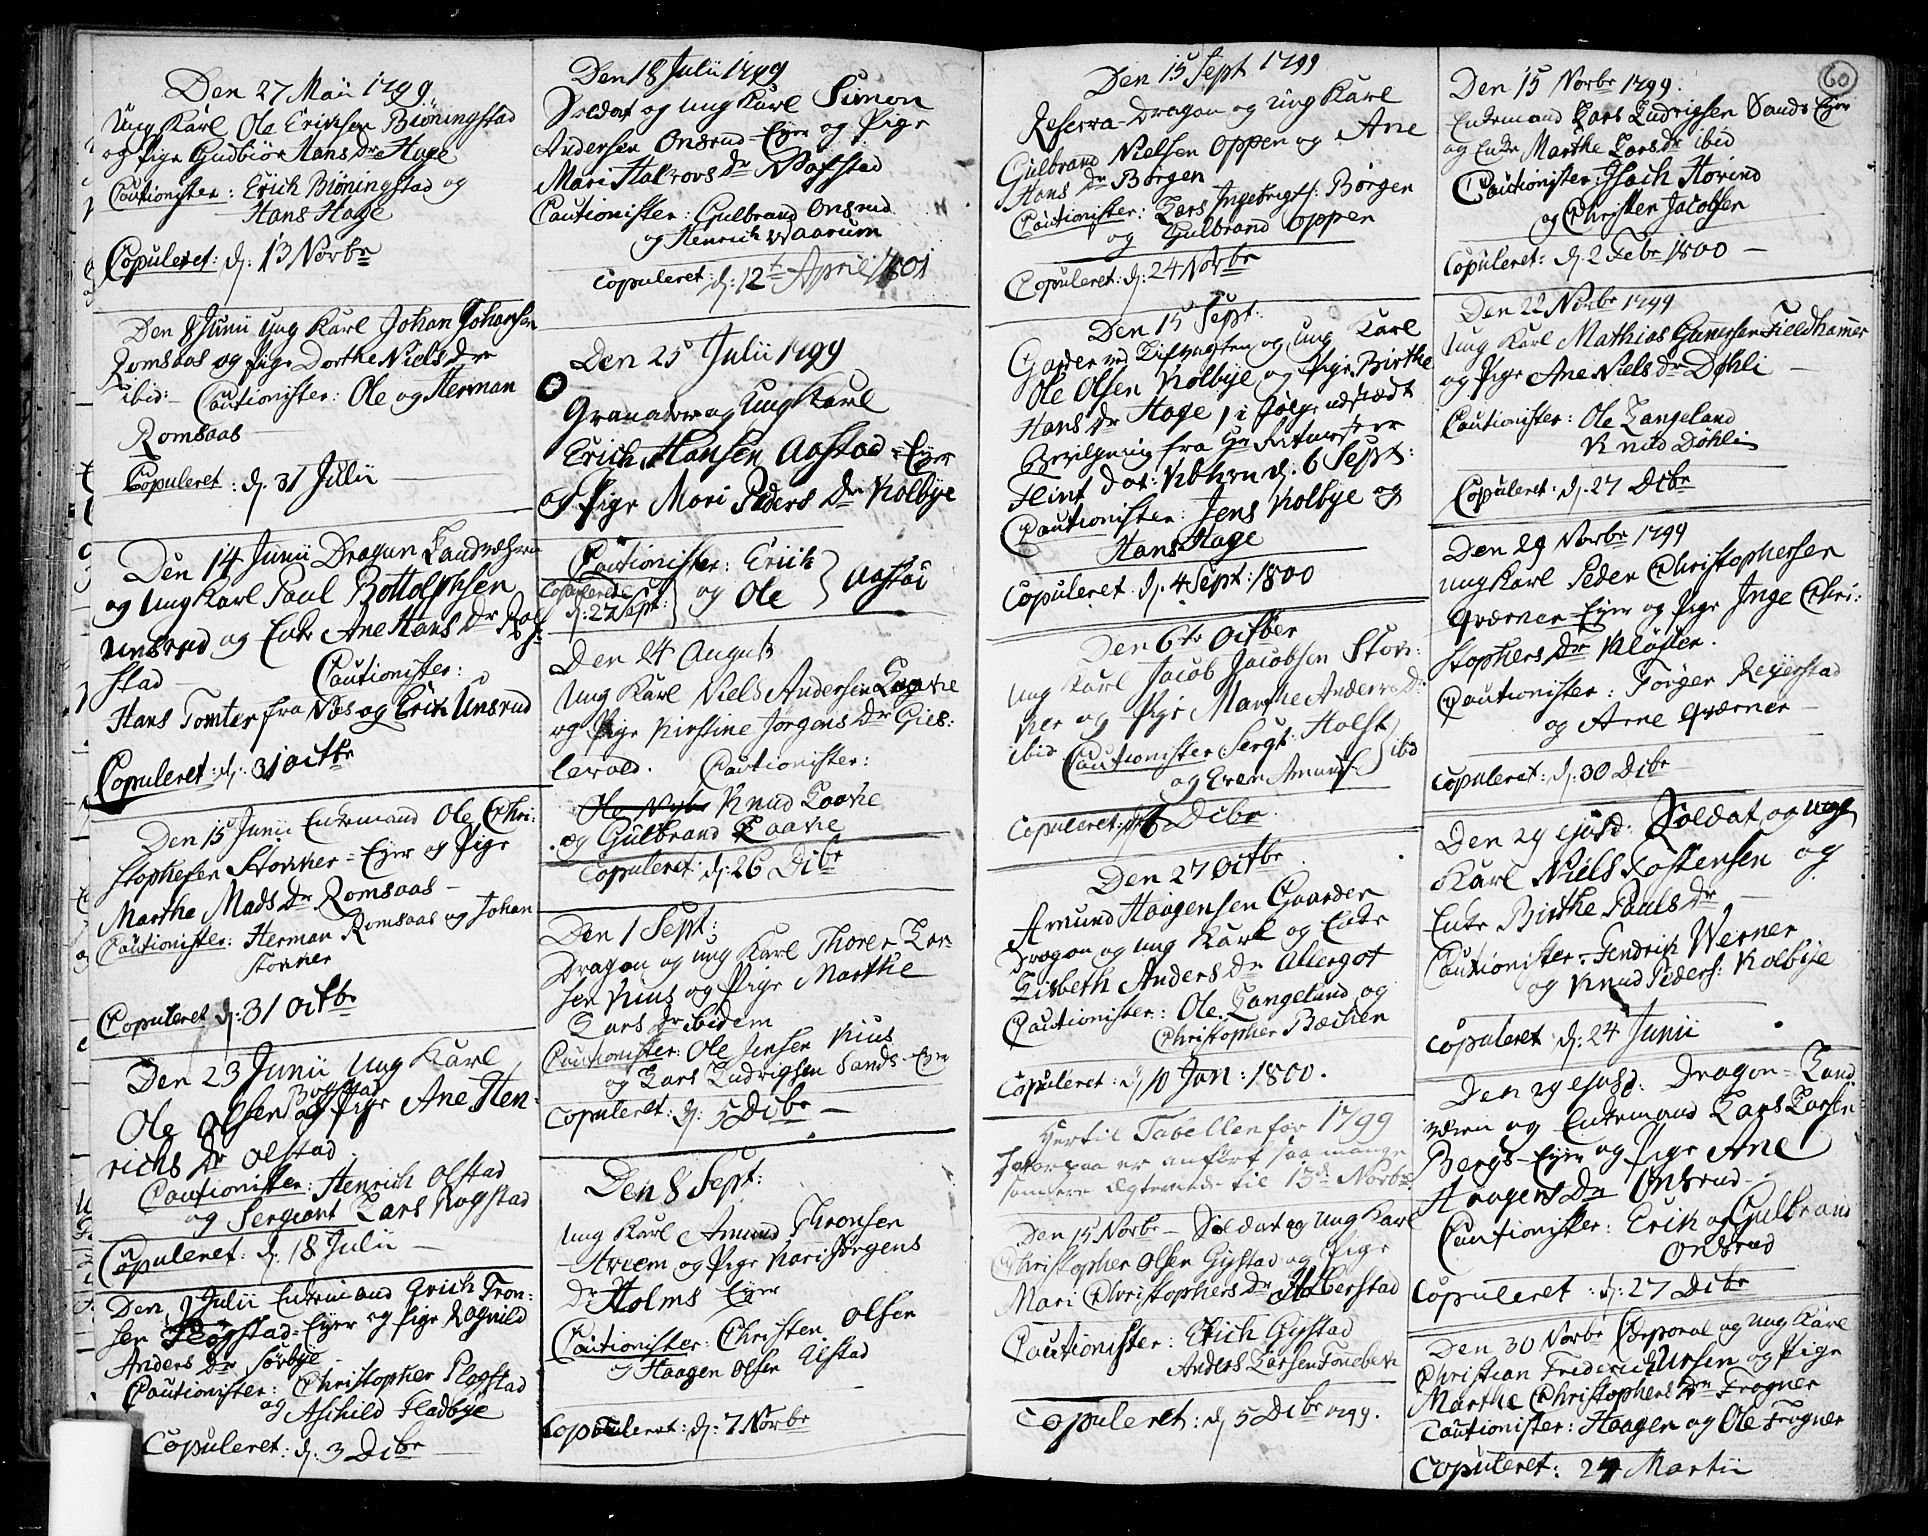 Den 27 Maii 1799
Ung Karl Ole Eriksen Biöningstad
og Pige Gudbiör Hans Dr Hage
Cautionister: Erich Biöningstad og
Hans Hage
Copuleret: d: 13 Novbr
Den 8 Junii Ung Karl Johan Johansen
Romsaas og Pige Dorthe Niels Dr
ibid: Cautionister: Ole og Herman
Romsaas
Copuleret: d: 31 Julii
Den 14 Junii Dragon Landværn
og Ung Karl Paul Bottolphsen
Unsrud og Enke Ane Hans Dr Rog-
stad Cautionister:
Hans Tomter fra Næs og Erik Unsrud
Copuleret: d: 31 Octbr
Den 15 Junii Enkemand Ole Chri:
stophesen Stokker-Eyer og Pige
Marthe Mads Dr Romsaas
Cautionister: Herman Romsaas og Johan
Stokker
Copuleret d: 31 Octbr
Den 23 Junii Ung Karl
Rogstad
Ole Olsen og Pige Ane Hen-
richs Dr Olstad
Cautionister: Henrich Olstad
og Sergiant Lars Rogstad
Copuleret: d: 18 Julii
Den Julii Enkemand Erich Tron-
sen Plogstad-Eyer og Pige Ragnild
Anders Dr Sörbye
Cautionister: Christopher Plogstad
og Aschild Fladbye
Copuleret: d: 3 Dcbr
Den 18 Julii 1799
Soldat og Ung Karl Simon
Andersen Onsrud-Eyer og Pige
Mari Halvors Dr
Cautionister: Gulbrand Onsrud
og Henrich Waarum
Copuleret: d: 12te April 1801
Den 25 Julii 1799
Granader og Ung Karl
Erich Hansen Aastad-Eyer
og Pige Mari Peders Dr Kolbye
Cautionister: Erich
og Ole } Aastad
Copulerede
d: 27 Sept:
Den 24 August
Ung Karl Niels Andersen Laake
og Pige Kirstine Jörgens Dr Gies:
levold. Cautionister:
Knud Laake
og Gulbrand Laake
Copuleret: d: 26 Dcbr
Den 1 Sept:
Dragon og Ung Karl Thorer Lar-
sen Kius og Pige Marthe
Lars Dr ibidem
Cautionister: Ole Jensen Kius
og Lars Ludvigsen Sands-Eyer
Copuleret: d: 5 Dcbr
Den 8 Sept:
Ung Karl Amund Thronsen
Hvem og Pige Kari Jörgens
Dr Holms Eyer
Cautionister: Christen Olsen
Haagen Olsen Ulstad
Copuleret: d: 7 Novbr
Den 15 Sept 1799
Reserva-Dragon og Ung Karl
Gulbrand Nielsen Oppen og Ane
Hans Dr Borgen
Cautionister: Lars Ingebrigts: Borgen
og Gulbrand Oppen
Copuleret: d: 24 Novbr
Den 15 Sept:
Garder ved Livvagten og Ung Karl
Ole Olsen Kolbye og Pige Birthe
Hans Dr Hage i fölge udstædt
Bevilgning fra Hr
Flint dat: Kbhvn d: 6 Sept:
Cautionister: Jens Kolbye og
Hans Hage
Copuleret d: 4 Sept: 1800
Den 6te Octber
Ung Karl Jacob Jacobsen Stok:
ker og Pige Marthe Anders Dr
ibid Cautionister Sergt: Holst
og Even Amunds: } ibd
Copuleret: d: 6 Dcbr.
Den 27 Octbr
Amund Haagensen Gaarder
Dragon og Ung Karl og Enke
Lisbeth Anders Dr Allergot
Cautionister: Ole Langeland og
Christopher Bækken
Copuleret: d 10 Jan: 1800.
Hertil Tabellen for 1799
hvorpaa er anfört saa mange
som ere Ægteviede til 15de Novbr
Den 15 Novbr - Soldat og Ung Karl
Christopher Olsen Gystad og Pige
Mari Christophers Dr Halberstad
Cautionister: Erich Gystad
Anders Larsen Fonebek
Copuleret: d 5 Dcbr 1799.
60
Den 15 Novbr 1799:
Enkemand Lars Ludvigsen Sands Eyer
og Enke Marthe Lars Dr ibid
Cautionister: Isach Hovind
og Christen Jacobsen
Copuleret: d: 2 Febr 1800
Den 22 Novbr 1799
Ung Karl Mathias Gunnersen Fieldhamer
og Pige Ane Niels Dr Döhli
Cautionister: Ole Langeland
Knud Döhli
Copuleret: d: 27 Dcbr
Den 29 Novbr 1799
Ung Karl Peder Christophersen
Qværner-Eyer og Pige Inge Chri:
stophers Dr Klöften.
Cautionister: Törger Reyerstad
og Arne Qværner
Copuleret: d: 30 Dcbr
Den 29 ejusd: Soldat og Ung
Karl Niels Tostensen og
Enke Birthe Pauls Dr
Cautionister: Fendrich Werner
og Knud Peders: Kolbye
Copuleret d: 24 Junii
Den 29 ejusd: Dragon-Land
værn og Enkemand Lars Larsen
Bergs-Eyer og Pige Ane
Haagens Dr Onsrud
Cautionister: Erik og Gulbrand
Onsrud
Copuleret: d: 27 Dcbr
Den 30 Novbr Corporal og Ung Karl
Christian Friderich Ursen og Pige
Marthe Christophers Dr Frogner
Cautionister: Haagen og Ole Frogner
Copuleret: 24 Martii